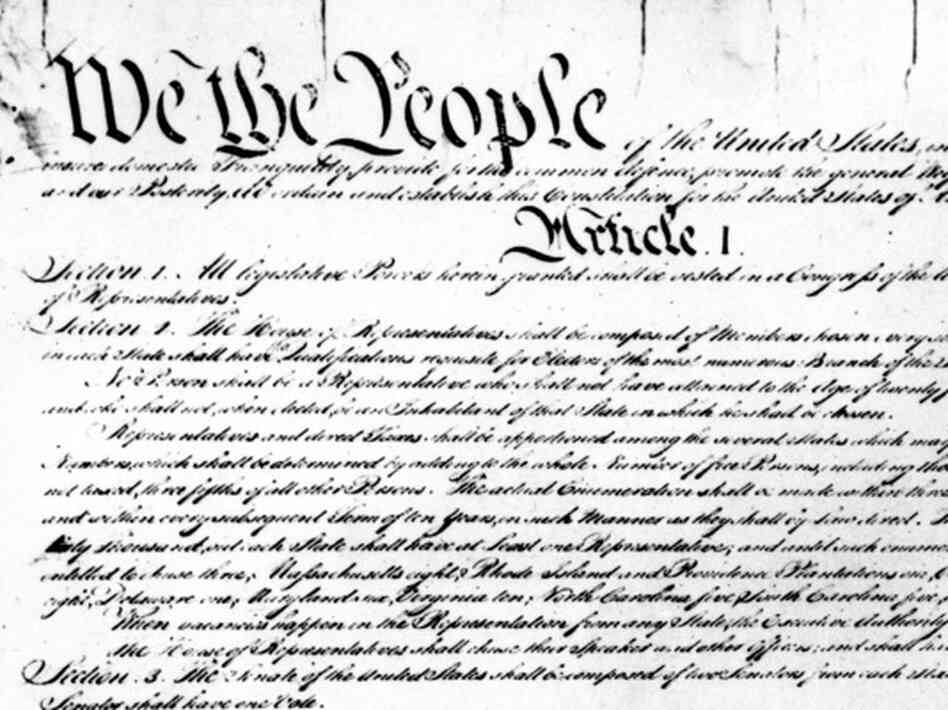 We the People of the United States,
insure domestic Tranquility, provide for the common defence, promote the general
and our Posterity, do ordain and establish this Constitution for the United States of
Article. I.
Section. 1. All legislative Powers herein granted shall be vested in a Congress of the
of Representatives.
Section. 2. The House of Representatives shall be composed of Members chosen every
in each State shall have Qualifications requisite for Electors of the most numerous Branch of the
No Person shall be a Representative who shall not have attained to the Age of twenty
and who shall not, when elected, be an Inhabitant of that State in which he shall be chosen.
Representatives and direct Taxes shall be apportioned among the several States which may
Numbers, which shall be determined by adding to the whole Number of free Persons, including those
not taxed, three fifths of all other Persons. The actual Enumeration shall be made within three
and within every subsequent Term of ten Years, in such Manner as they shall by Law direct.
thirty Thousand, but each State shall have at Least one Representative; and until such enumeration
entitled to chuse three, Massachusetts eight, Rhode Island and Providence Plantations one,
eight, Delaware one, Maryland six, Virginia ten, North Carolina five, South Carolina five,
When vacancies happen in the Representation from any State, the Executive Authority
The House of Representatives shall chuse their Speaker and other Officers; and shall have
Section. 3. The Senate of the United States shall be composed of two Senators from each State
Senator shall have one Vote.